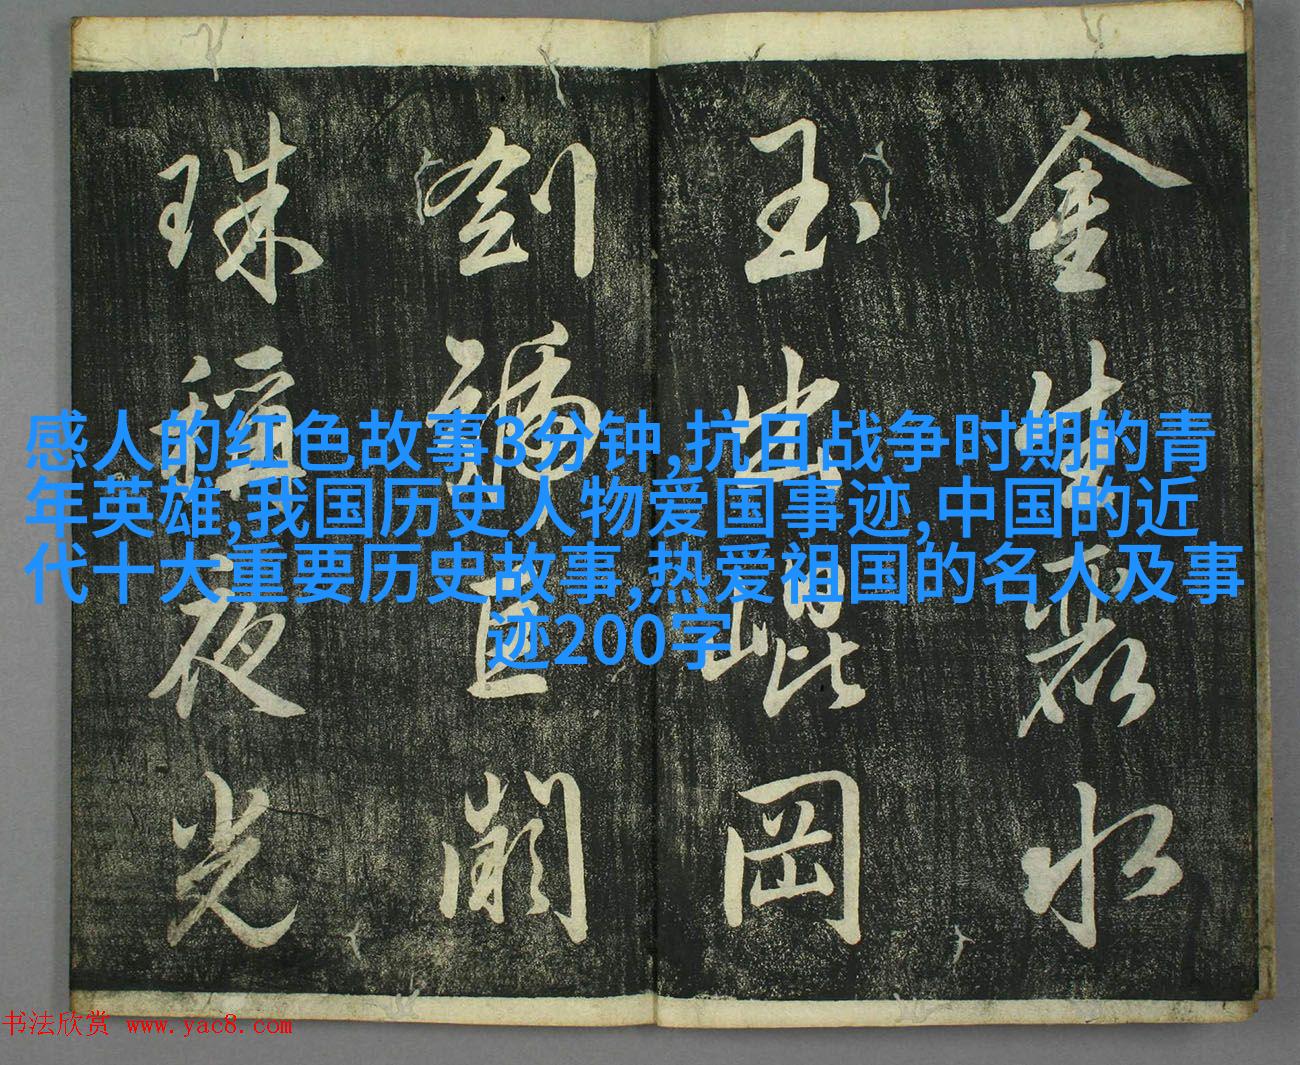 金生麗水
玉出崐岡
劍號巨闕
珠稱夜光
感人的红色故事3分钟,抗日战争时期的青
年英雄,我国历史人物爱国事迹,中国的近
代十大重要历史故事,热爱祖国的名人及事
迹200字
书法欣赏 www.yac8.com